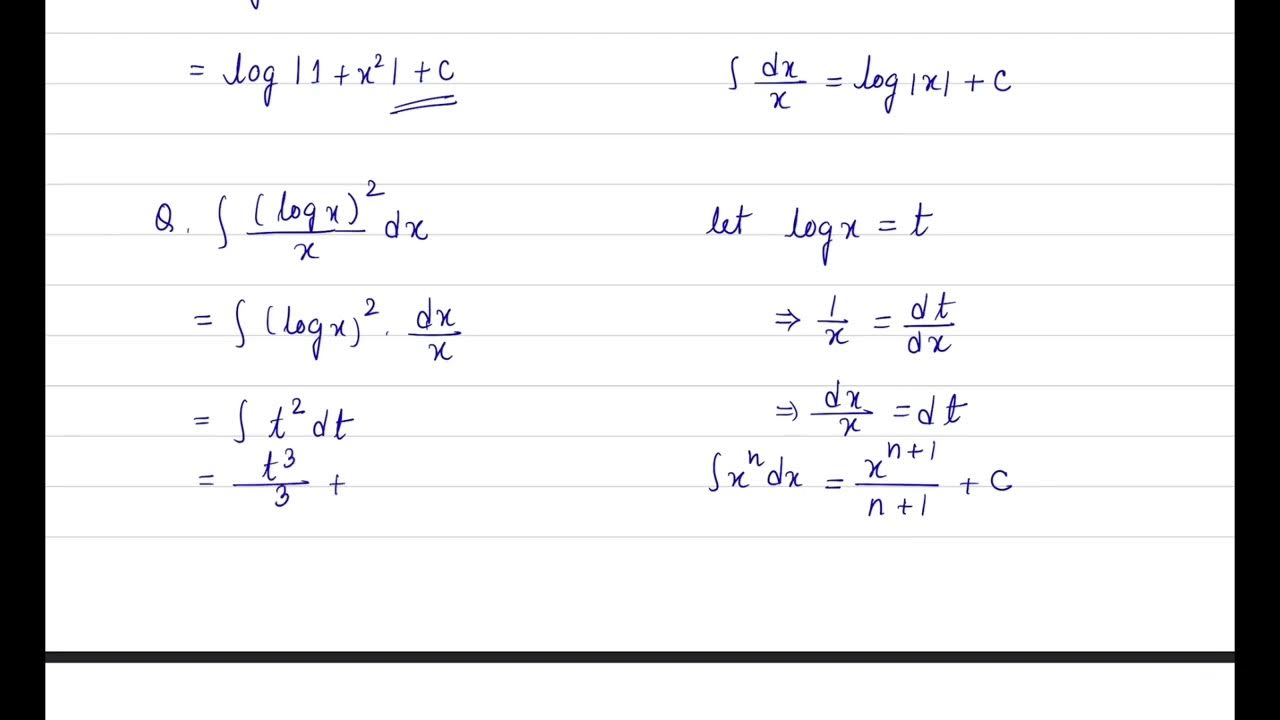 = log |1 + x²| + C
∫ dx/x = log|x| + C
Q. ∫ (log x)²/x dx
let log x = t
= ∫ (log x)² . dx/x
⇒ 1/x = dt/dx
= ∫ t² dt
⇒ dx/x = dt
= t³/3 +
∫xⁿdx = xⁿ⁺¹/n+1 + C